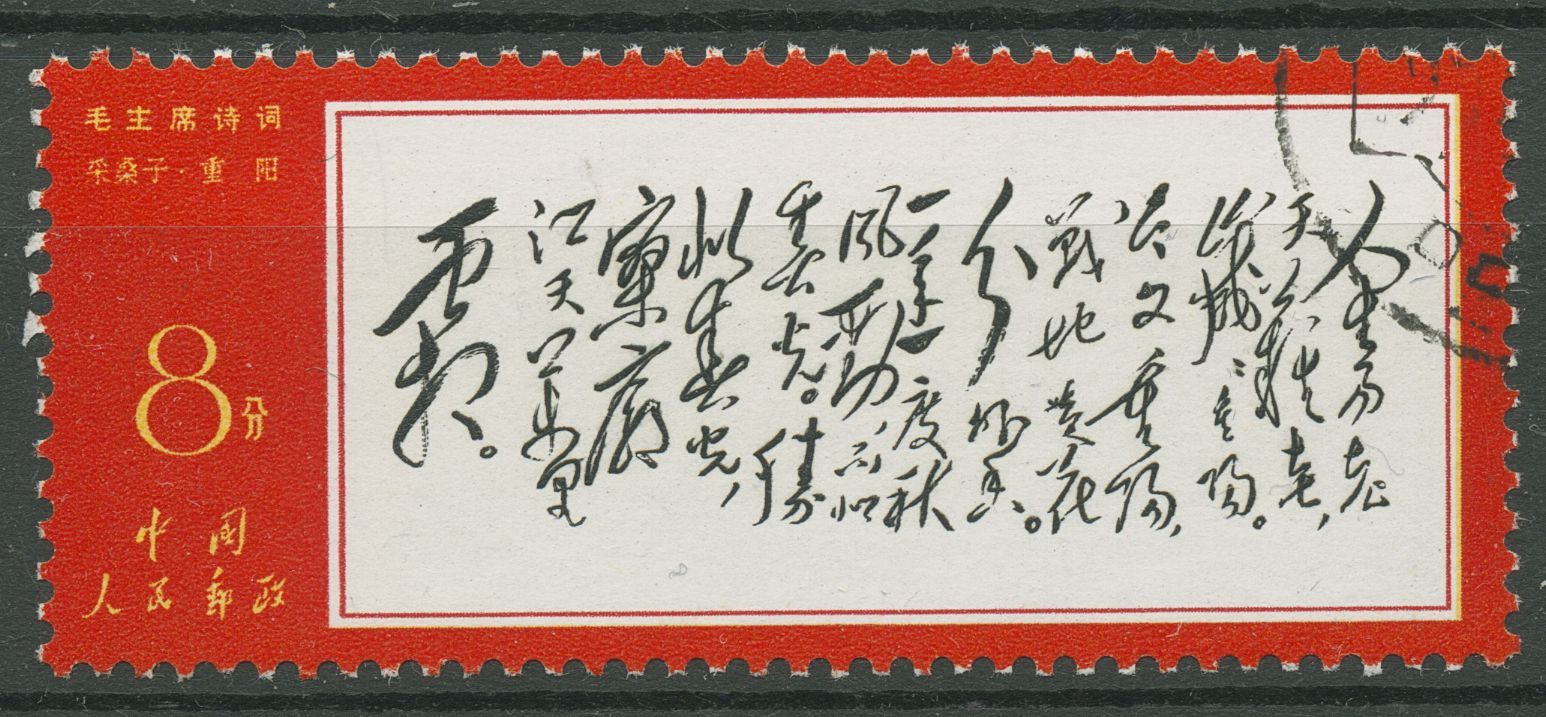 毛主席诗词
采桑子·重阳
8分
中国
人民郵政
人生易老
天難老,
歲歲重陽。
今又重陽,
戰地黄花
分外香。
一年一度秋
風勁不似
春光。勝
似春光,
寥廓
江天萬里
霜。